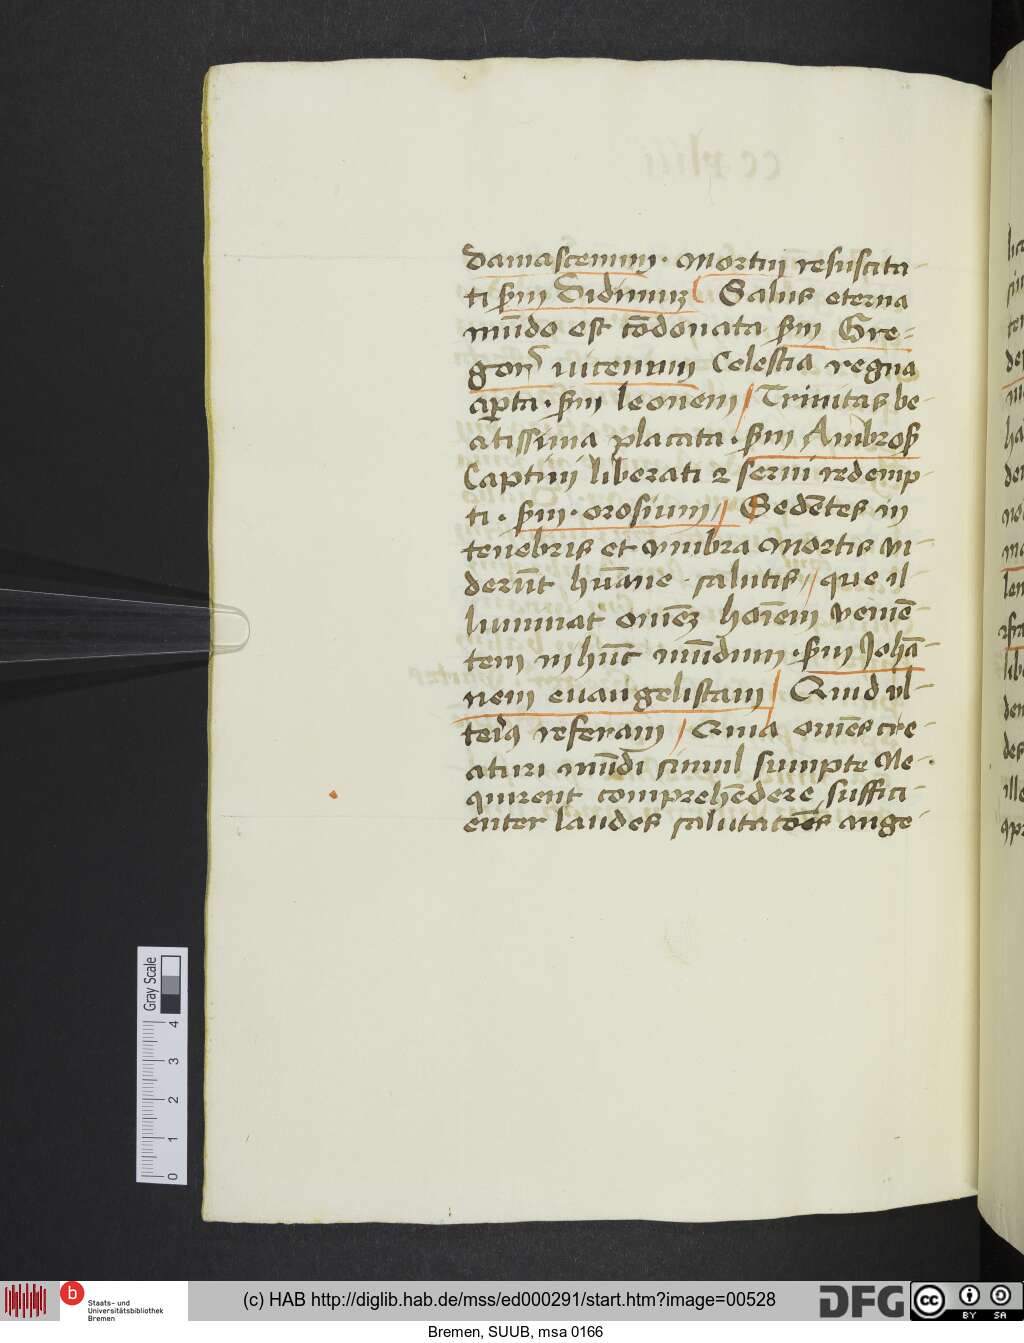 damascenum. Mortui resuscita-
ti sm̄ Didimuʒ Salus eterna
mūdo est cōdonata sm̄ Gre-
gor᷒ nicenum Celestia regna
aꝑta. sm̄ leonem / Trinitas be-
atissima placata. sm̄ Ambros
Captiui liberati ⁊ serui redemp-
ti. sm̄. orosium // Sedētes in
tenebris et vmbra mortis vi-
derūt hūane salutis // que il-
luminat omēʒ hoīem veniē-
tem in hūc mūdum. sm̄ Johā-
nem euangelistam / Quid vl-
teriꝰ referam / Quia omēs cre-
aturi mūdi simul sumpte Ne-
quirent comprehēdere suffici-
enter laudes salutatōēs ange-
Gray Scale
0 1 2 3 4
b
Staats- und
Universitätsbibliothek
Bremen
(c) HAB http://diglib.hab.de/mss/ed000291/start.htm?image=00528
DFG
cc BY SA
Bremen, SUUB, msa 0166